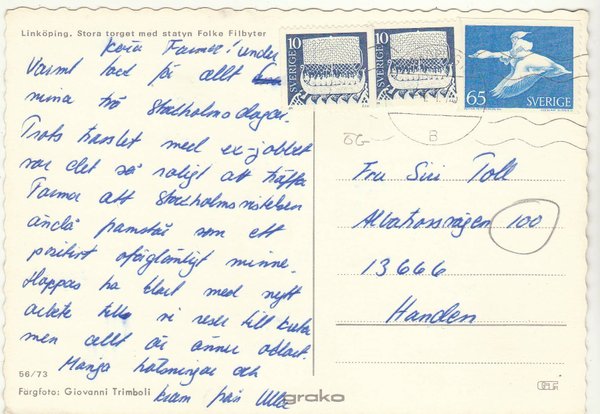 Linköping. Stora torget med statyn Folke Filbyter
Kära Farmor! under
Varmt tack för allt
mina två Stockholmsdagar.
Trots trasslet med ex-jobbet
var det så roligt att träffa
Farmor att Stockholmsvistelsen
ändå framstår som ett
positivt oförglömligt minne.
Hoppas ha blivit med nytt
arbete tills vi reser till
men allt är ännu oklart.
Många hälsningar och
kram från Ulla
56/73
Färgfoto: Giovanni Trimboli
grako
10
SVERIGE
10
SVERIGE
65
SVERIGE
B
ÖG
Fru Siri Toll
Albatrossvägen 100
13666
Handen